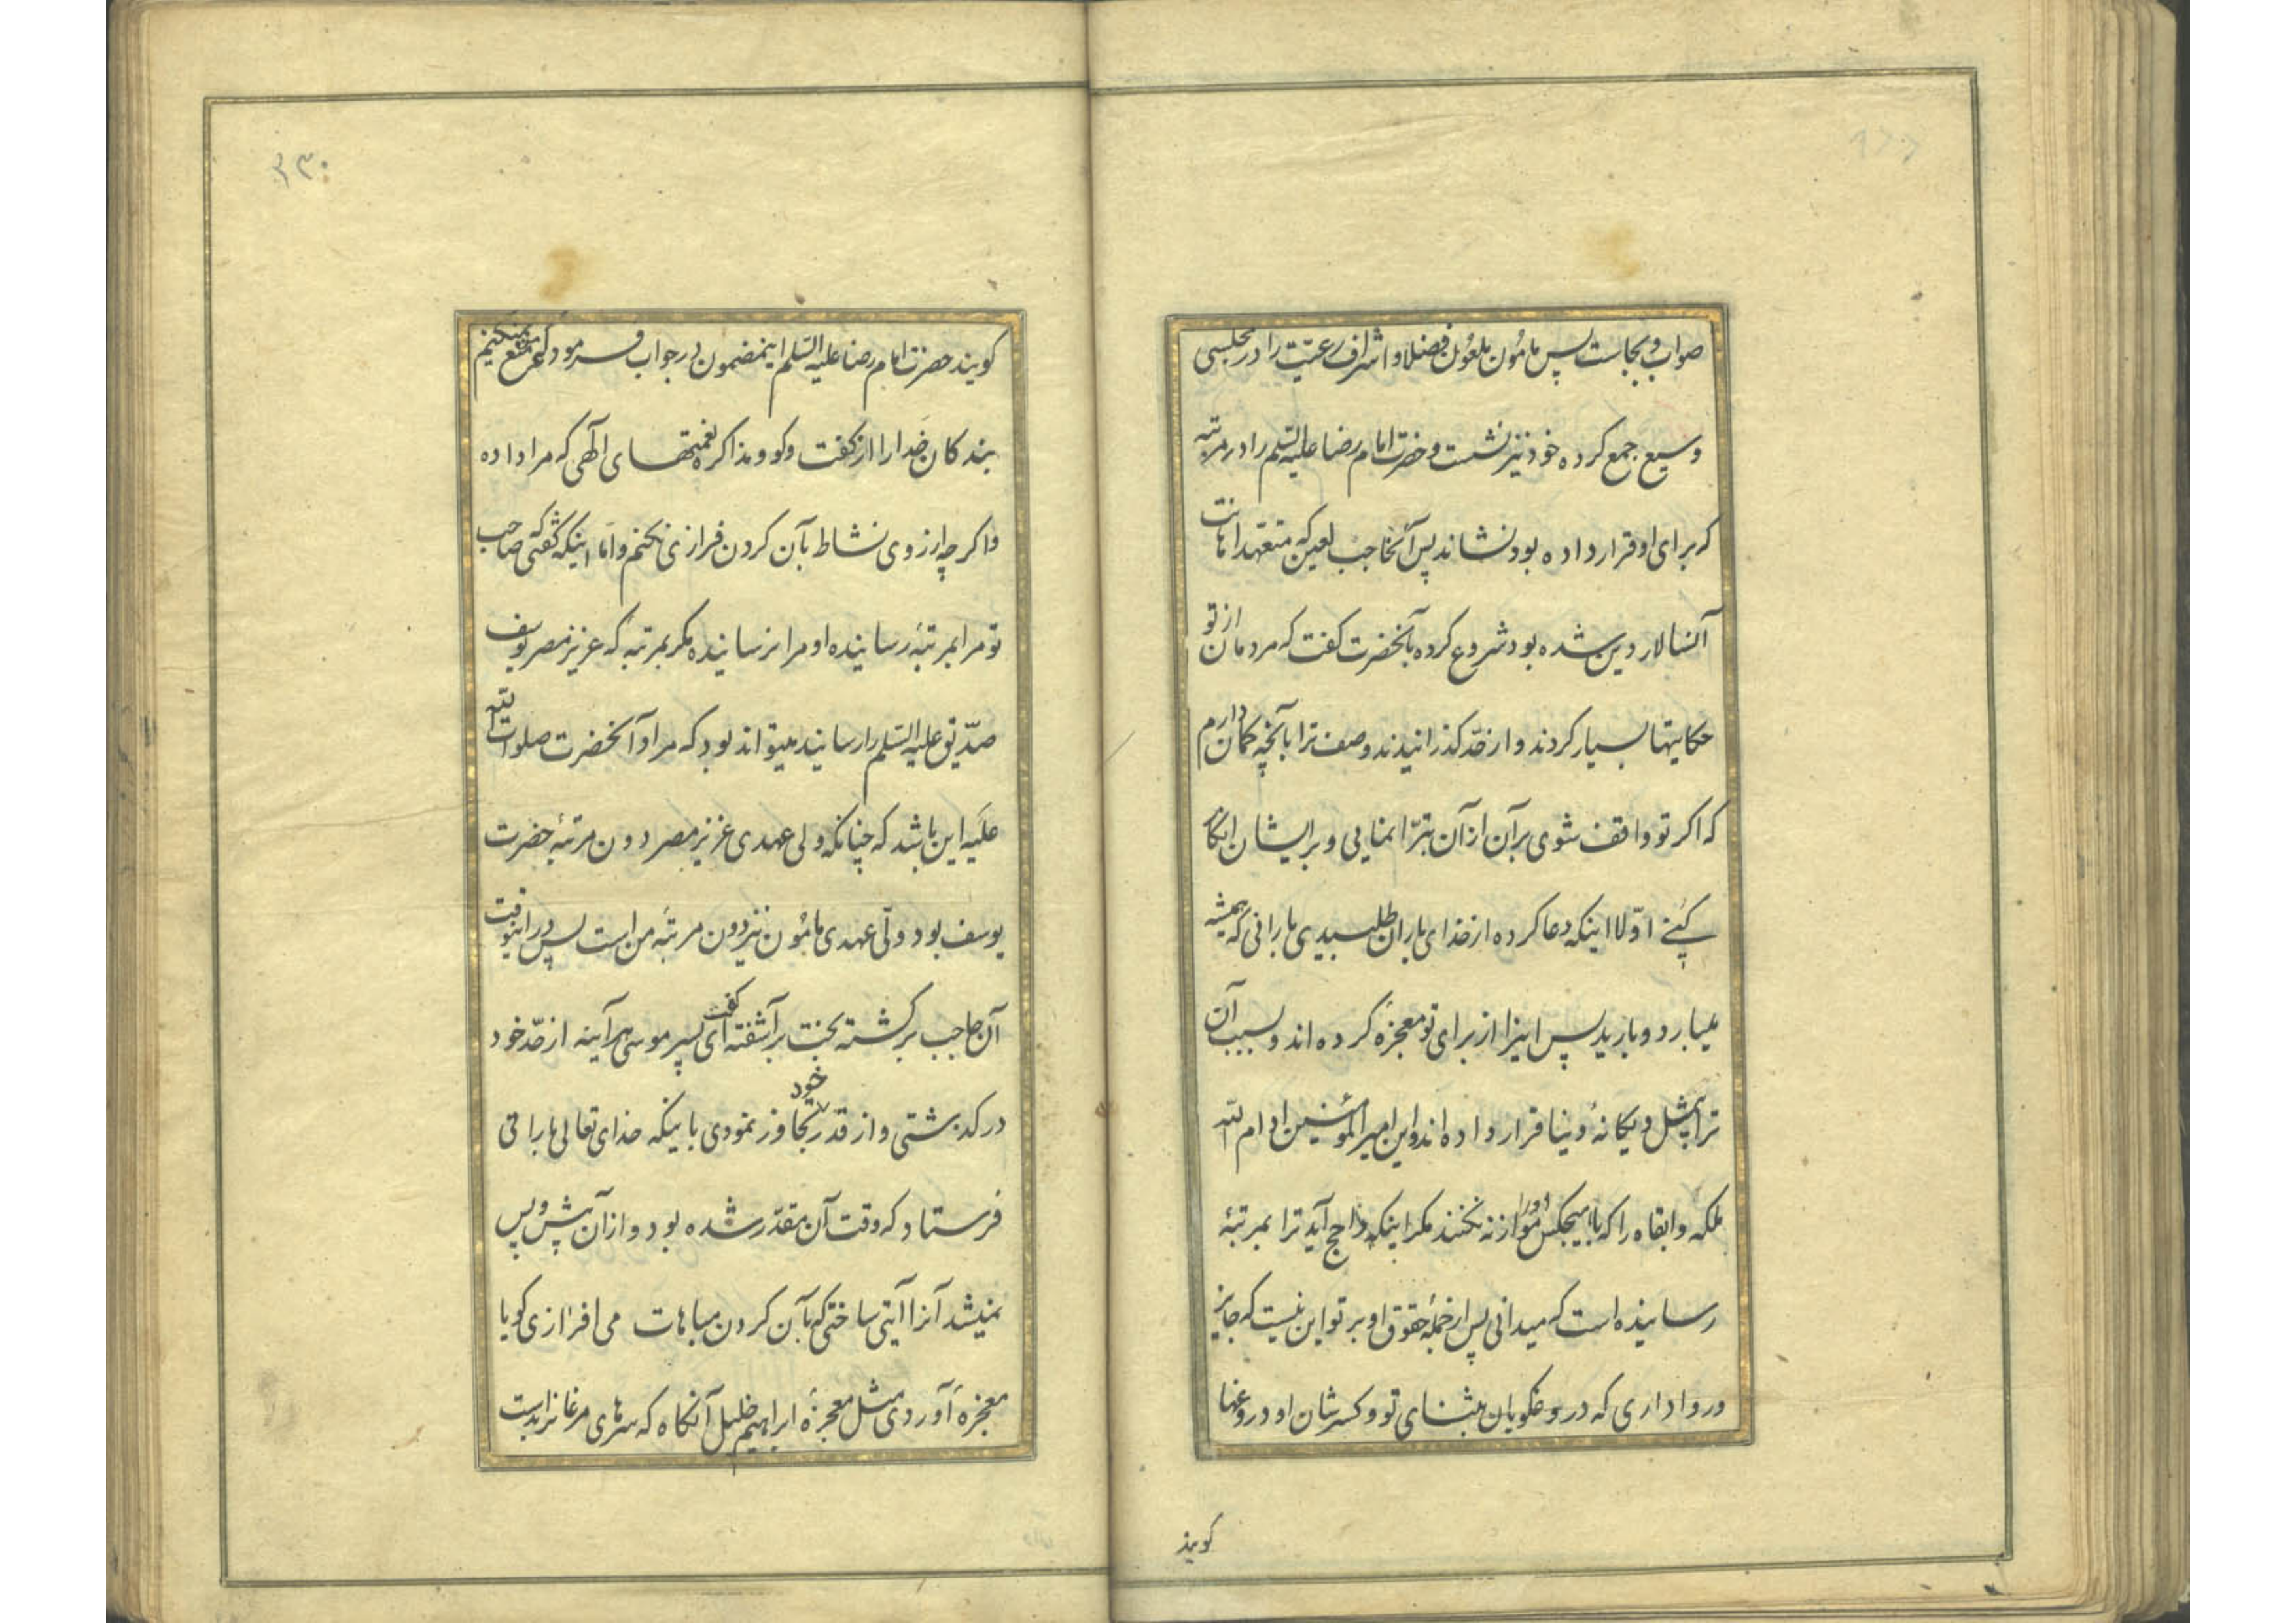 صواب و بجاست پس مامون ملعون فضلا و اشراف رعیّت را در مجلسی
وسیع جمع کرده خود نیز نشست و حضرت امام رضا علیه السّلم را در مرتبه
که برای او قرار داده بود نشاند پس آنحاجب لعین که متعهد اهانت
آنسالار دین شده بود شروع کرده بآنحضرت گفت که مردمان از تو
حکایتها بسیار کردند و از حدّ گذرانیدند وصف ترا بآنچه گمان دارم
که اگر تو واقف شوی بر آن از آن تبرّا نمایی و بر ایشان انکار
کنے اوّلا اینکه دعا کرده از خدای باران طلبیدی بارانی که همیشه
میبارد و بارید پس اینرا از برای تو معجزهٔ کرده اند و بسبب آن
ترا بیمثل و یگانهٔ دنیا قرار داده اند و این امیر المؤمنین ادام اللّه
ملکه و ابقاه را که با هیچکس او را موازنه نکنند مگر اینکه راجح آید ترا بمرتبهٔ
رسانیده است که میدانی پس از جملهٔ حقوق او بر تو این نیست که جایز
و روا داری که دروغگویان بثنای تو و کسر شان او دروغها
گویند
۳۳۰
گویند حضرت امام رضا علیه السّلم اینمضمون در جواب فرمود که من منع نمیکنیم
بندگان خدا را از گفت و گو و مذاکره نعمتهای الهی که مرا داده
و اگر چه از روی نشاط بآن گردن فرازی نکنم و امّا اینکه گفتی که صاحب
تو مرا بمرتبهٔ رسانیده او مرا نرسانیده مگر بمرتبهٔ که عزیز مصر یوسف
صدّیق علیه السّلم را رسانید میتواند بود که مراد آنحضرت صلوات اللّه
علیه این باشد که چنانکه ولی عهدی عزیز مصر دون مرتبهٔ حضرت
یوسف بود ولی عهدی مامون نیز دون مرتبهٔ من است پس در اینوقت
آن حاجب برگشته بخت برآشفته گفت ای پسر موسی هر آینه از حدّ خود
درگذشتی و از قدر خود تجاوز نمودی باینکه خدای تعالی بارانی
فرستاد که وقت آن مقدّر شده بود و از آن پیش و پس
نمیشد آنرا آیتی ساختی که بآن گردن مباهات می افرازی گویا
معجزهٔ آوردی مثل معجزهٔ ابراهیم خلیل آنگاه که سرهای مرغانرا بدست